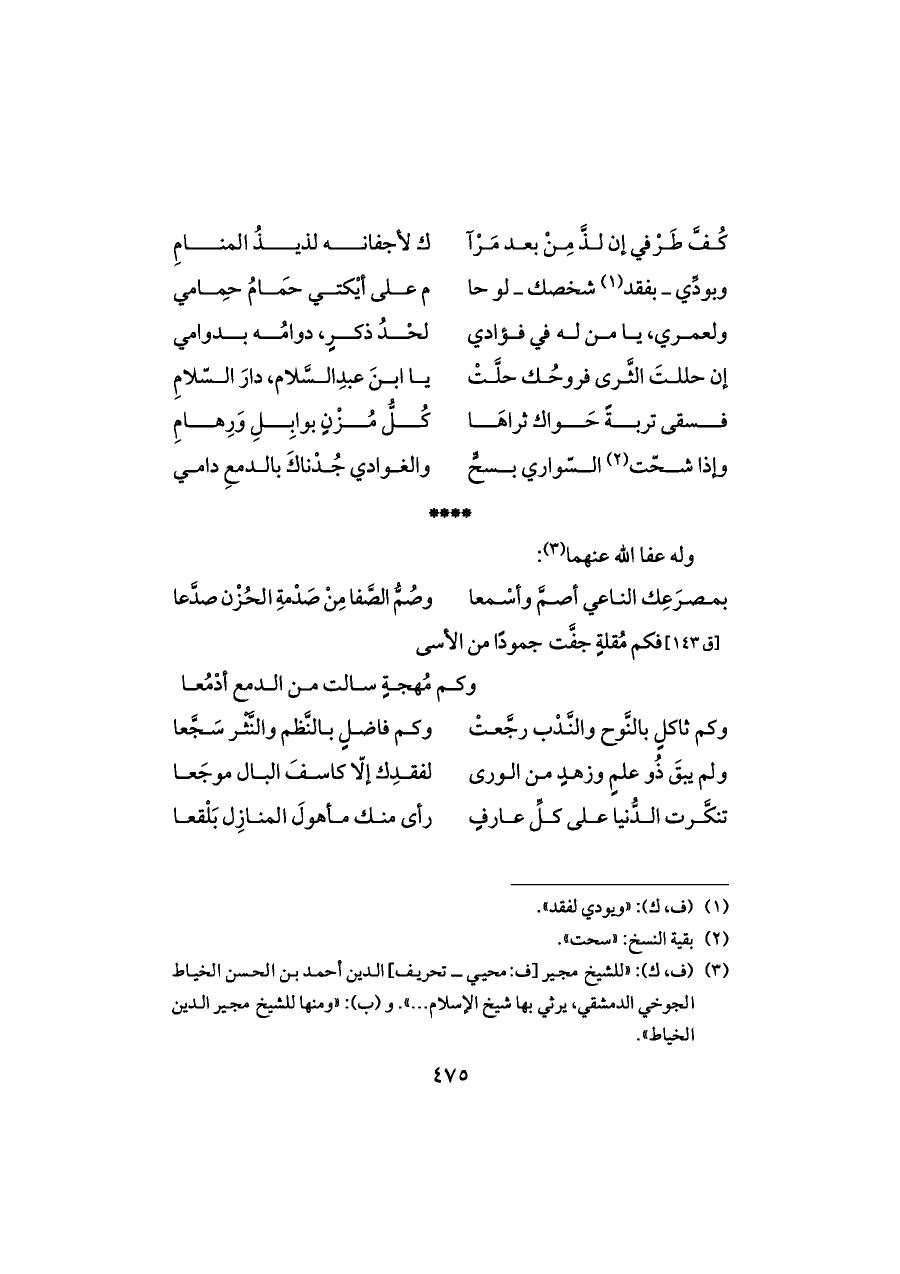 كُفَّ طَرْفي إن لذَّ مِنْ بعد مَرْآ ك لأجفانه لذيذُ المنامِ
وبودِّي ـ بفقد(١) شخصك ـ لو حا م على أيْكتي حمَامُ حِمامي
ولعمري، يا من له في فؤادي لحْدُ ذكرٍ، دوامُه بدوامي
إن حللتَ الثَّرى فروحُك حلَّتْ يا ابنَ عبدِالسَّلام، دارَ السّلامِ
فسقى تربةً حَواك ثراهَا كُلُّ مُزْنٍ بوابِلِ وَرِهامِ
وإذا شحّت(٢) السّواري بسحٍّ والغوادي جُدْناكَ بالدمعِ دامي
****
وله عفا الله عنهما(٣):
بمصرَعِك الناعي أصمَّ وأسْمعا وصُمُّ الصَّفا مِنْ صَدْمةِ الحُزْن صدَّعا
[ق١٤٣] فكم مُقلةٍ جفَّت جمودًا من الأسى
وكم مُهجةٍ سالت من الدمع أدْمُعا
وكم ثاكلٍ بالنَّوح والنَّدْب رجَّعتْ وكم فاضلٍ بالنَّظم والنَّثْر سَجَّعا
ولم يبقَ ذُو علمٍ وزهدٍ من الورى لفقدِك إلّا كاسفَ البال موجَعا
تنكَّرت الدُّنيا على كلِّ عارفٍ رأى منك مأهولَ المنازِل بَلْقعا
(١) (ف، ك): «ويودي لفقد».
(٢) بقية النسخ: «سحت».
(٣) (ف، ك): «للشيخ مجير [ف: محيي ـ تحريف] الدين أحمد بن الحسن الخياط
الجوخي الدمشقي، يرثي بها شيخ الإسلام...». و (ب): «ومنها للشيخ مجير الدين
الخياط».
٤٧٥